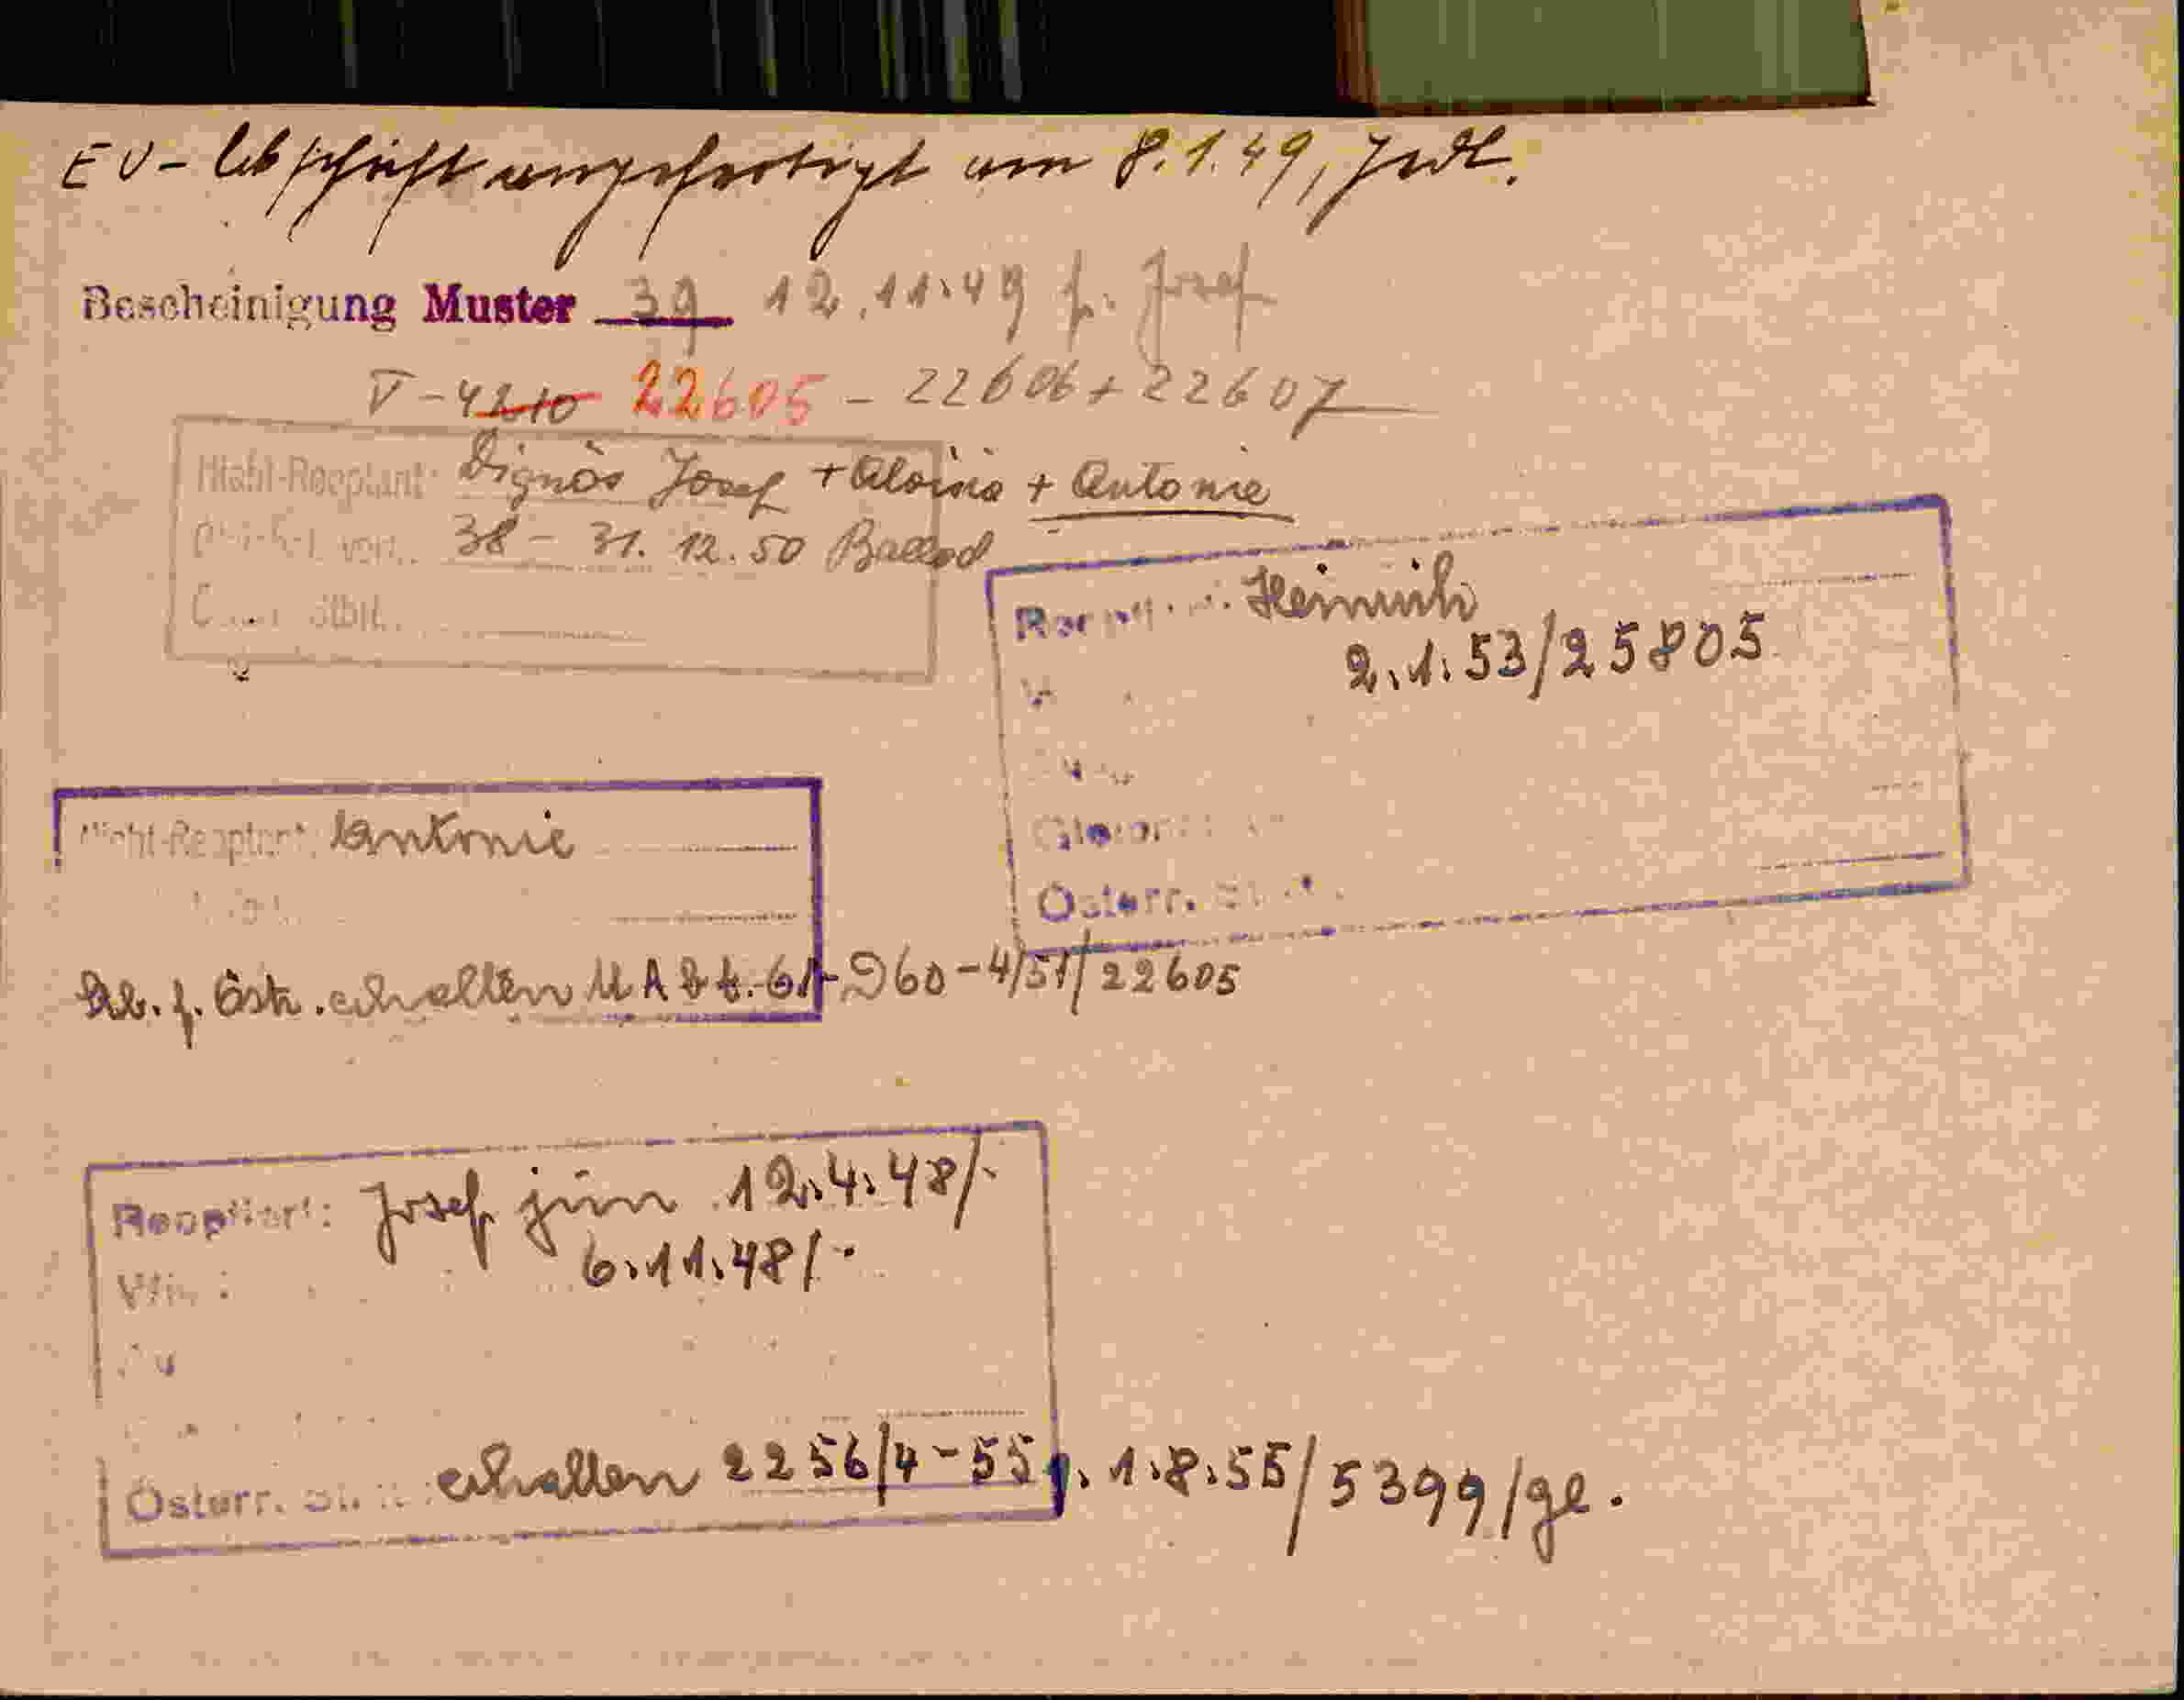 EU - Abschrift angefertigt am 8.1.49,
Bescheinigung Muster 39 12.11.49 f. Josef
V - 4210 22605 - 22606 + 22607
Nicht-Reoptant: Dignös Josef + Aloisia + Antonie
von 38 - 31. 12. 50
Heinrich
2.1.53/25805
Österr.
Nicht-Reoptant: Antonie
f. Östr. erhalten 960-4/51/22605
Reoptiert: Josef jun 12.4.48/-
6.11.48/-
Österr. erhalten 2256/4-55 1.8.55/5399/ge.